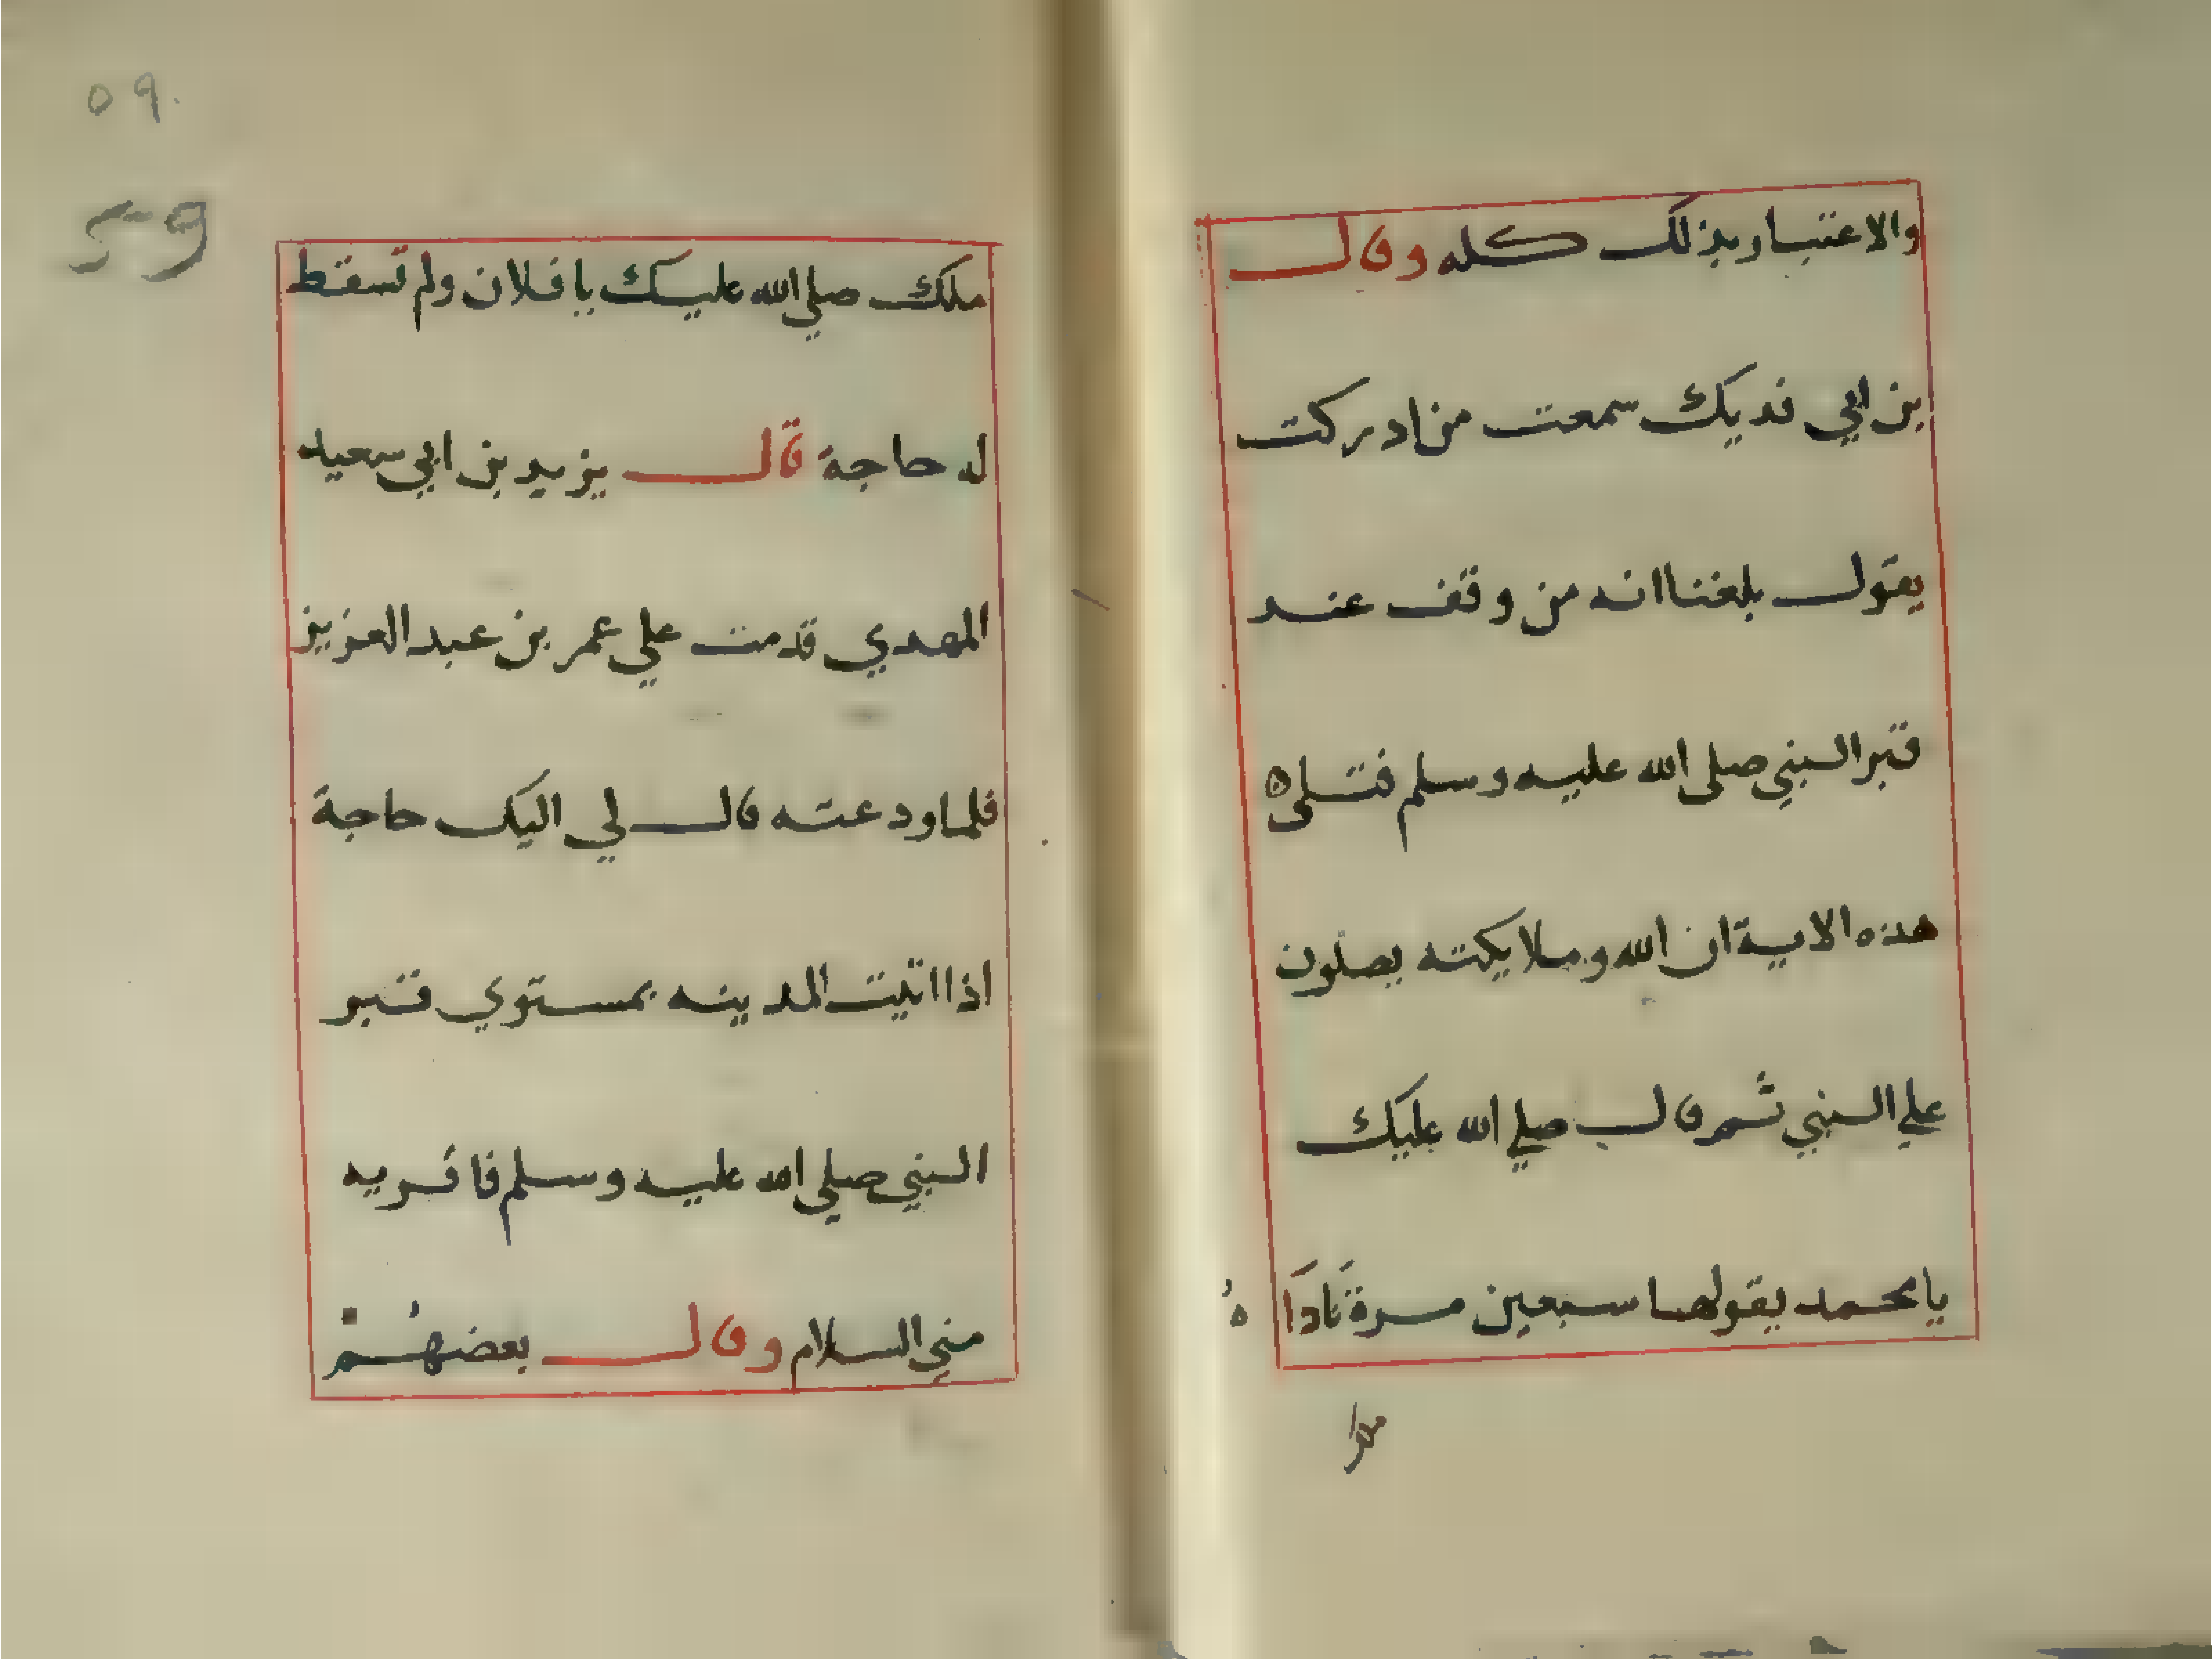 والاعتبار بذلك كله وقال
بن ابي فديك سمعت من ادركت
يقول بلغنا انه من وقف عند
قبر النبي صلى الله عليه وسلم فتلى
هذه الاية ان الله وملايكته يصلون
علي النبي ثم قال صلي الله عليك
يا محمد يقولها سبعين مرة نَادَاهُ
ملك صلي الله عليك يا فلان ولم تسقط
له حاجة قال يزيد بن ابي سعيد
المهدي قدمت علي عمر بن عبد العزيز
فلما ودعته قال لي اليك حاجة
اذا اتيت المدينه بمستوي قبر
النبي صلي الله عليه وسلم فاقريه
مني السلام وقال بعضهُمْ
٥٩
59